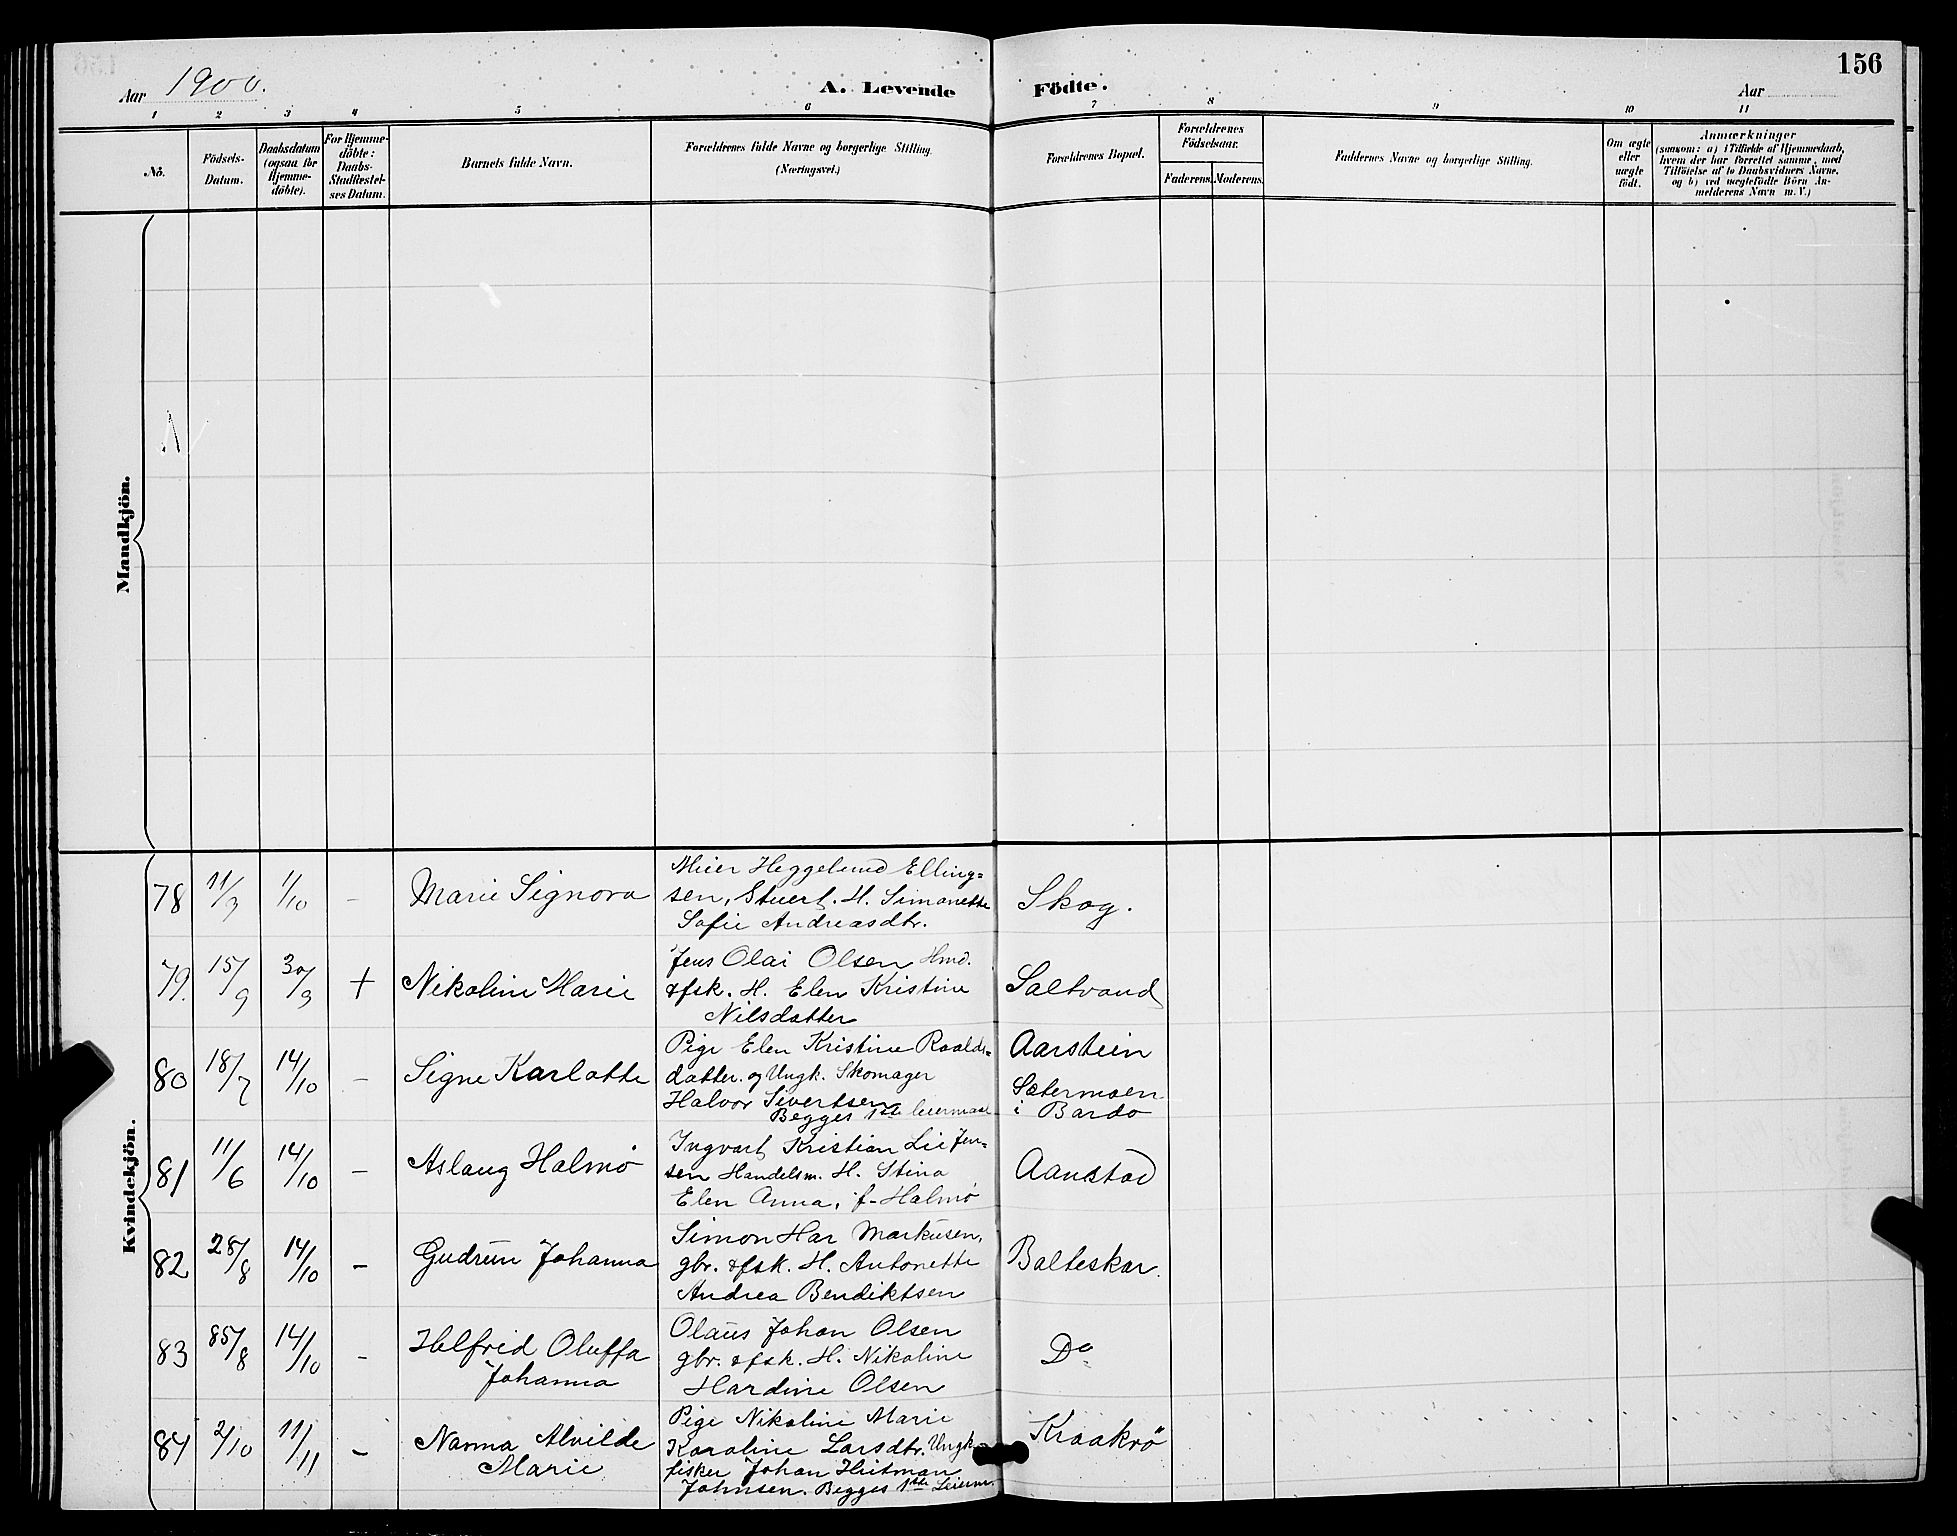 156
Aar 1900.
A. Levende Födte.
Aar
1 2 3 4 5 6 7 8 9 10 11
No.
Födsels-
Datum.
Daabsdatum
(ogsaa for
Hjemme-
döbte).
For Hjemme-
döbte:
Daabs-
Stadfæstel-
ses Datum.
Barnets fulde Navn.
Forældrenes fulde Navne og borgerlige Stilling.
(Næringsvei.)
Forældrenes Bopæl.
Forældrenes
Födselsaar.
Faderens. Moderens.
Faddernes Navne og borgerlige Stilling.
Om ægte
eller
uægte
födt.
Anmærkninger
(saasom: a) i Tilfælde af Hjemmedaab,
hvem der har forrettet samme, med
Tilföielse af to Daabsvidners Navne,
og b) ved uægtefödte Börn An-
melderens Navn m. V.)
Mandkjön.
Kvindekjön.
78 11/9 1/10 - Marie Signora
Meier Heggelund Elling-
sen, Stuert. H. Simonette
Sofie Andreasdtr.
Skog.
79. 15/9 30/9 + Nikoline Marie
Jens Olai Olsen Hmd.
& fsk. H. Elen Kristine
Nilsdatter
Saltvand
80 18/7 14/10 - Signe Karlotte
Pige Elen Kristine Roalds-
datter. og Ungk. Skomager
Halvor Sivertsen
Begges 1ste leiermaal
Aarstein
Sætermoen
i Bardo
81 11/6 14/10 - Aslaug Halmö
Ingvart Kristian Lie Jen-
sen Handelsm. H. Stina
Elen Anna, f. Halmö
Aanstad
82 28/8 14/10 - Gudrun Johanna
Simon Har Markusen,
gbr. & fsk. H. Antonette
Andrea Bendiktsen
Balteskar.
83 25/8 14/10 - Helfrid Oluffa
Johanna
Olaus Johan Olsen
gbr. & fsk. H. Nikoline
Hardine Olsen
Do
84 2/10 11/11 - Nanna Alvilde
Marie
Pige Nikoline Marie
Karoline Larsdtr. Ungk.
fisker Johan Hutman
Johnsen. Begges 1ste Leierm.
Kraakrö